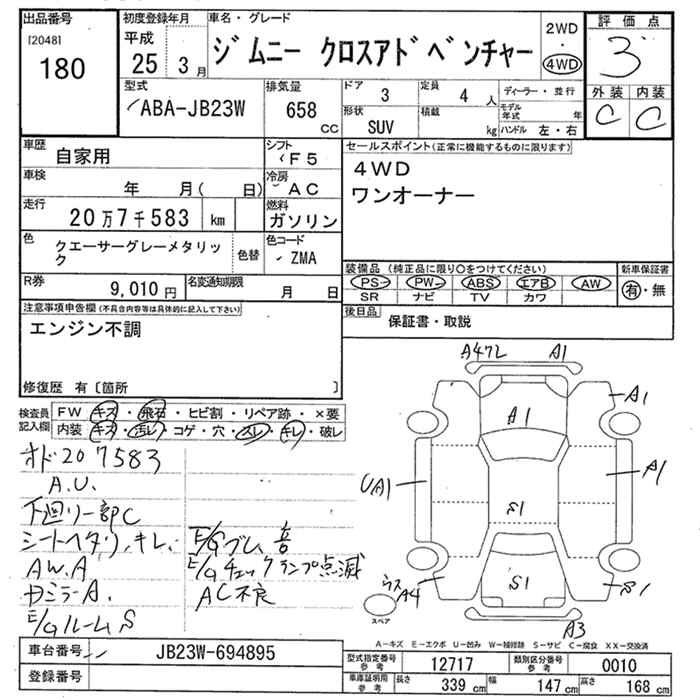 出品番号
[2048]
180
初度登録年月
平成
25 3月
車名・グレード
ジムニー クロスアドベンチャー
2WD
・
4WD
評価点
3
外装 内装
C C
型式
ABA-JB23W
排気量
658
cc
ドア
3
定員
4 人
形状
SUV
積載
kg
ディーラー・並行
モデル年式 年
ハンドル 左・右
車歴
自家用
シフト
F5
車検
年 月( 日)
冷房
AC
走行
20万7千583 km
燃料
ガソリン
色
クエーサーグレーメタリック
色替
色コード
ZMA
R券
9,010円
名変通知期限
月 日
セールスポイント(正常に機能するものに限ります)
4WD
ワンオーナー
装備品 (純正品に限り○をつけてください)
PS PW ABS エアB AW
SR ナビ TV カワ
新車保証書
有・無
後日品
保証書・取説
注意事項申告欄(不具合内容等は具体的に記入して下さい)
エンジン不調
修復歴 有〔箇所 〕
検査員記入欄
FW キズ・飛石・ヒビ割・リペア跡・×要
内装 キズ・汚レ・コゲ・穴・スレ・キレ・破レ
オド207583
A.U.
下廻り一部C
シートヘタリ、キレ、
AW.A
カミラーA.
E/GルームS
E/Gゴム、音
E/Gチェックランプ点滅
AC不良
A472 A1
A1
A1
UA1
A1
S1
S1
A4
S1
A3
スペア
A－キズ E－エクボ U－凹み W－補修跡 S－サビ C－腐食 XX－交換済
車台番号
JB23W-694895
登録番号
型式指定番号参考
12717
類別区分番号参考
0010
車庫証明用参考
長さ 339 cm
幅 147 cm
高さ 168 cm